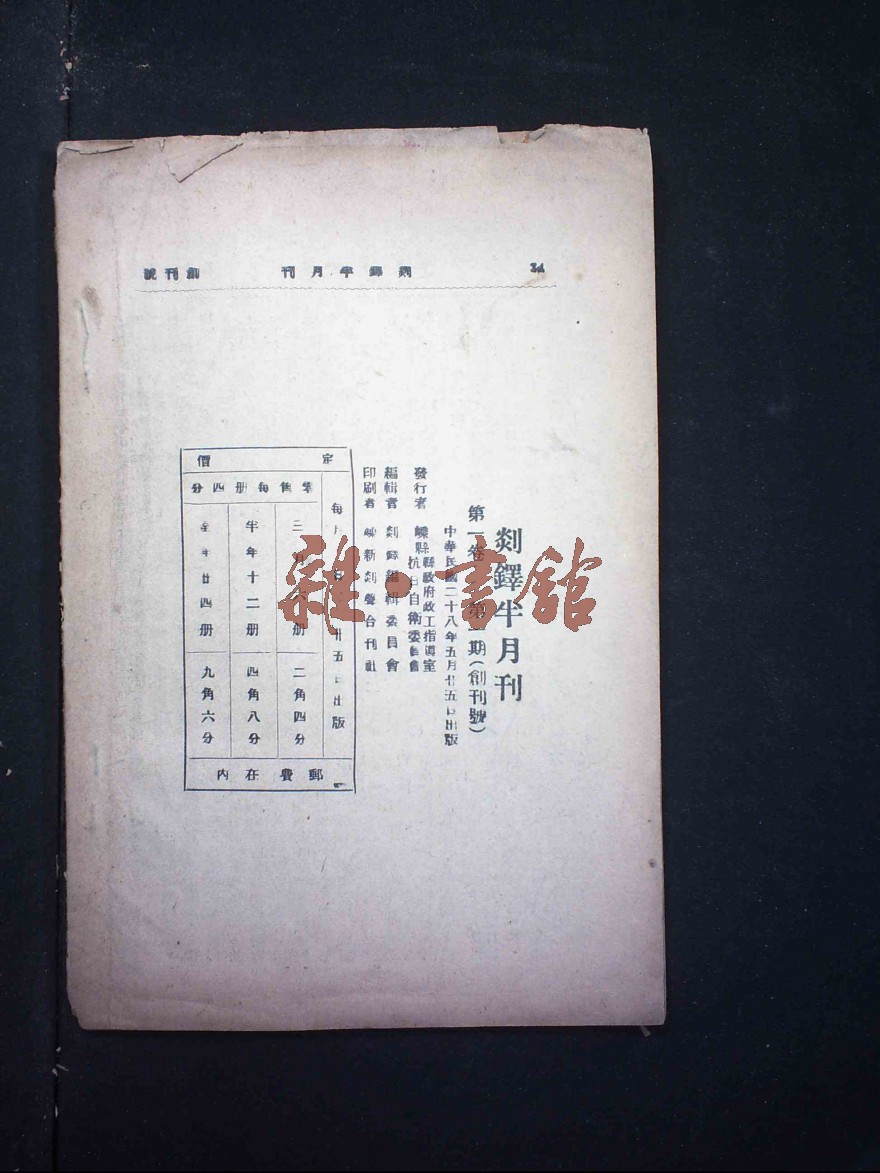 34　剡鐸半月刊　創刊號
剡鐸半月刊
第一卷　第一期（創刊號）
中華民國二十八年五月廿五日出版
發行者　嵊縣縣政府政工指導室
抗日自衛委員會
編輯者　剡鐸編輯委員會
印刷者　嵊新剡聲合刊社
定價
每月　廿五日出版
零售每册四分
三月六册　二角四分
半年十二册　四角八分
全年廿四册　九角六分
郵費在内
雜·書館